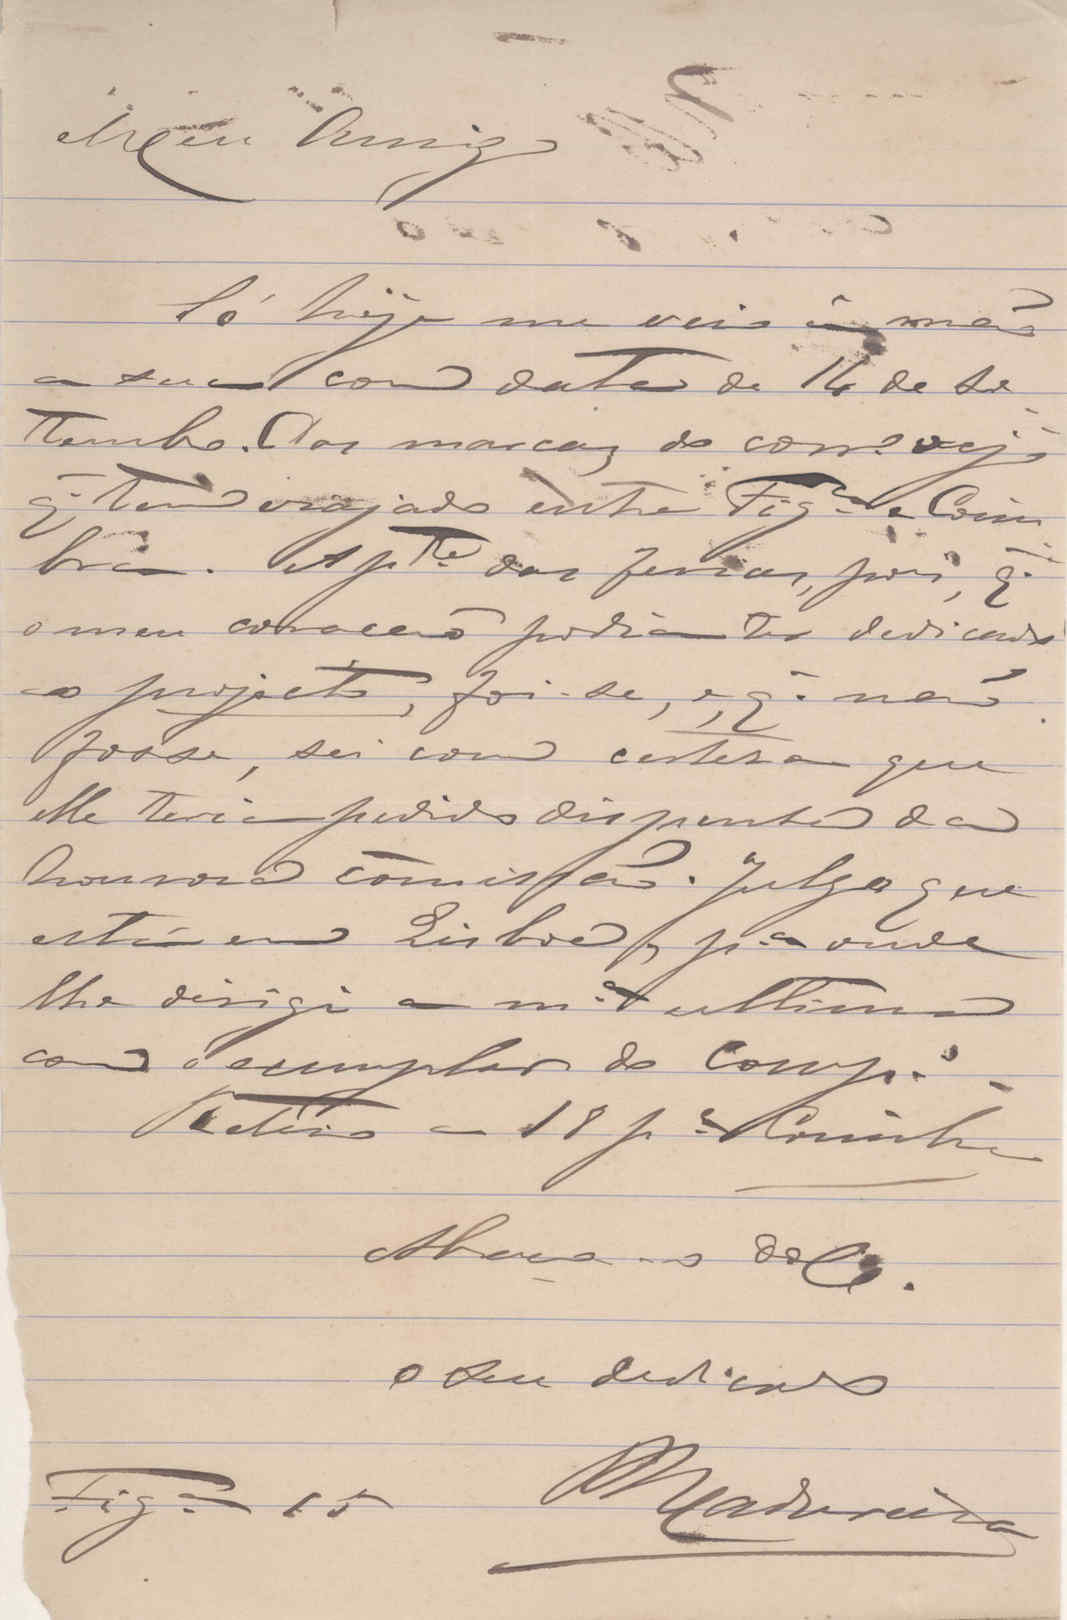 Meu Amigo
Só hoje me veio á mão
a sua com data de 14 de Se
tembro. Das marcas do corrº vejo
q̃ tem viajado entre Figrª e Coim
bra. A pte das ferias, pois, q̃
o meu coração podia ter dedicado
ao projecto, foi-se, e, q̃ não
fosse, sei com certeza que
elle teria pedido dispensa da
honrosa comissão. Julgo que
está em Lisboa, pª onde
lhe dirigi a mª ultima
com o exemplar do Comp.
Retiro a 18 pª Coimbra
Abraça-o
o seu dedicado
Madureira
Figrª 15